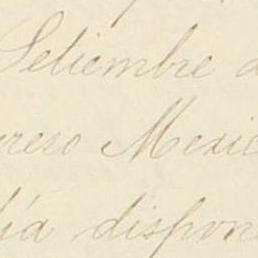 Setiembre d
rrero Mexic
día dispon